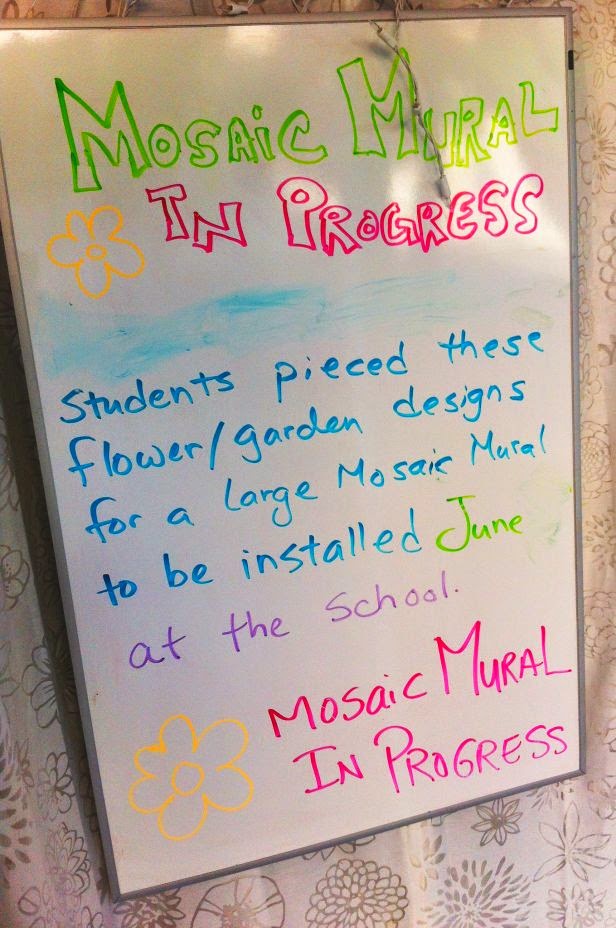 MOSAiC MURAL
IN PROGRESS
Students pieced these
flower/garden designs
for a large Mosaic Mural
to be installed June
at the School.
MOSAiC MURAL
IN PROGRESS